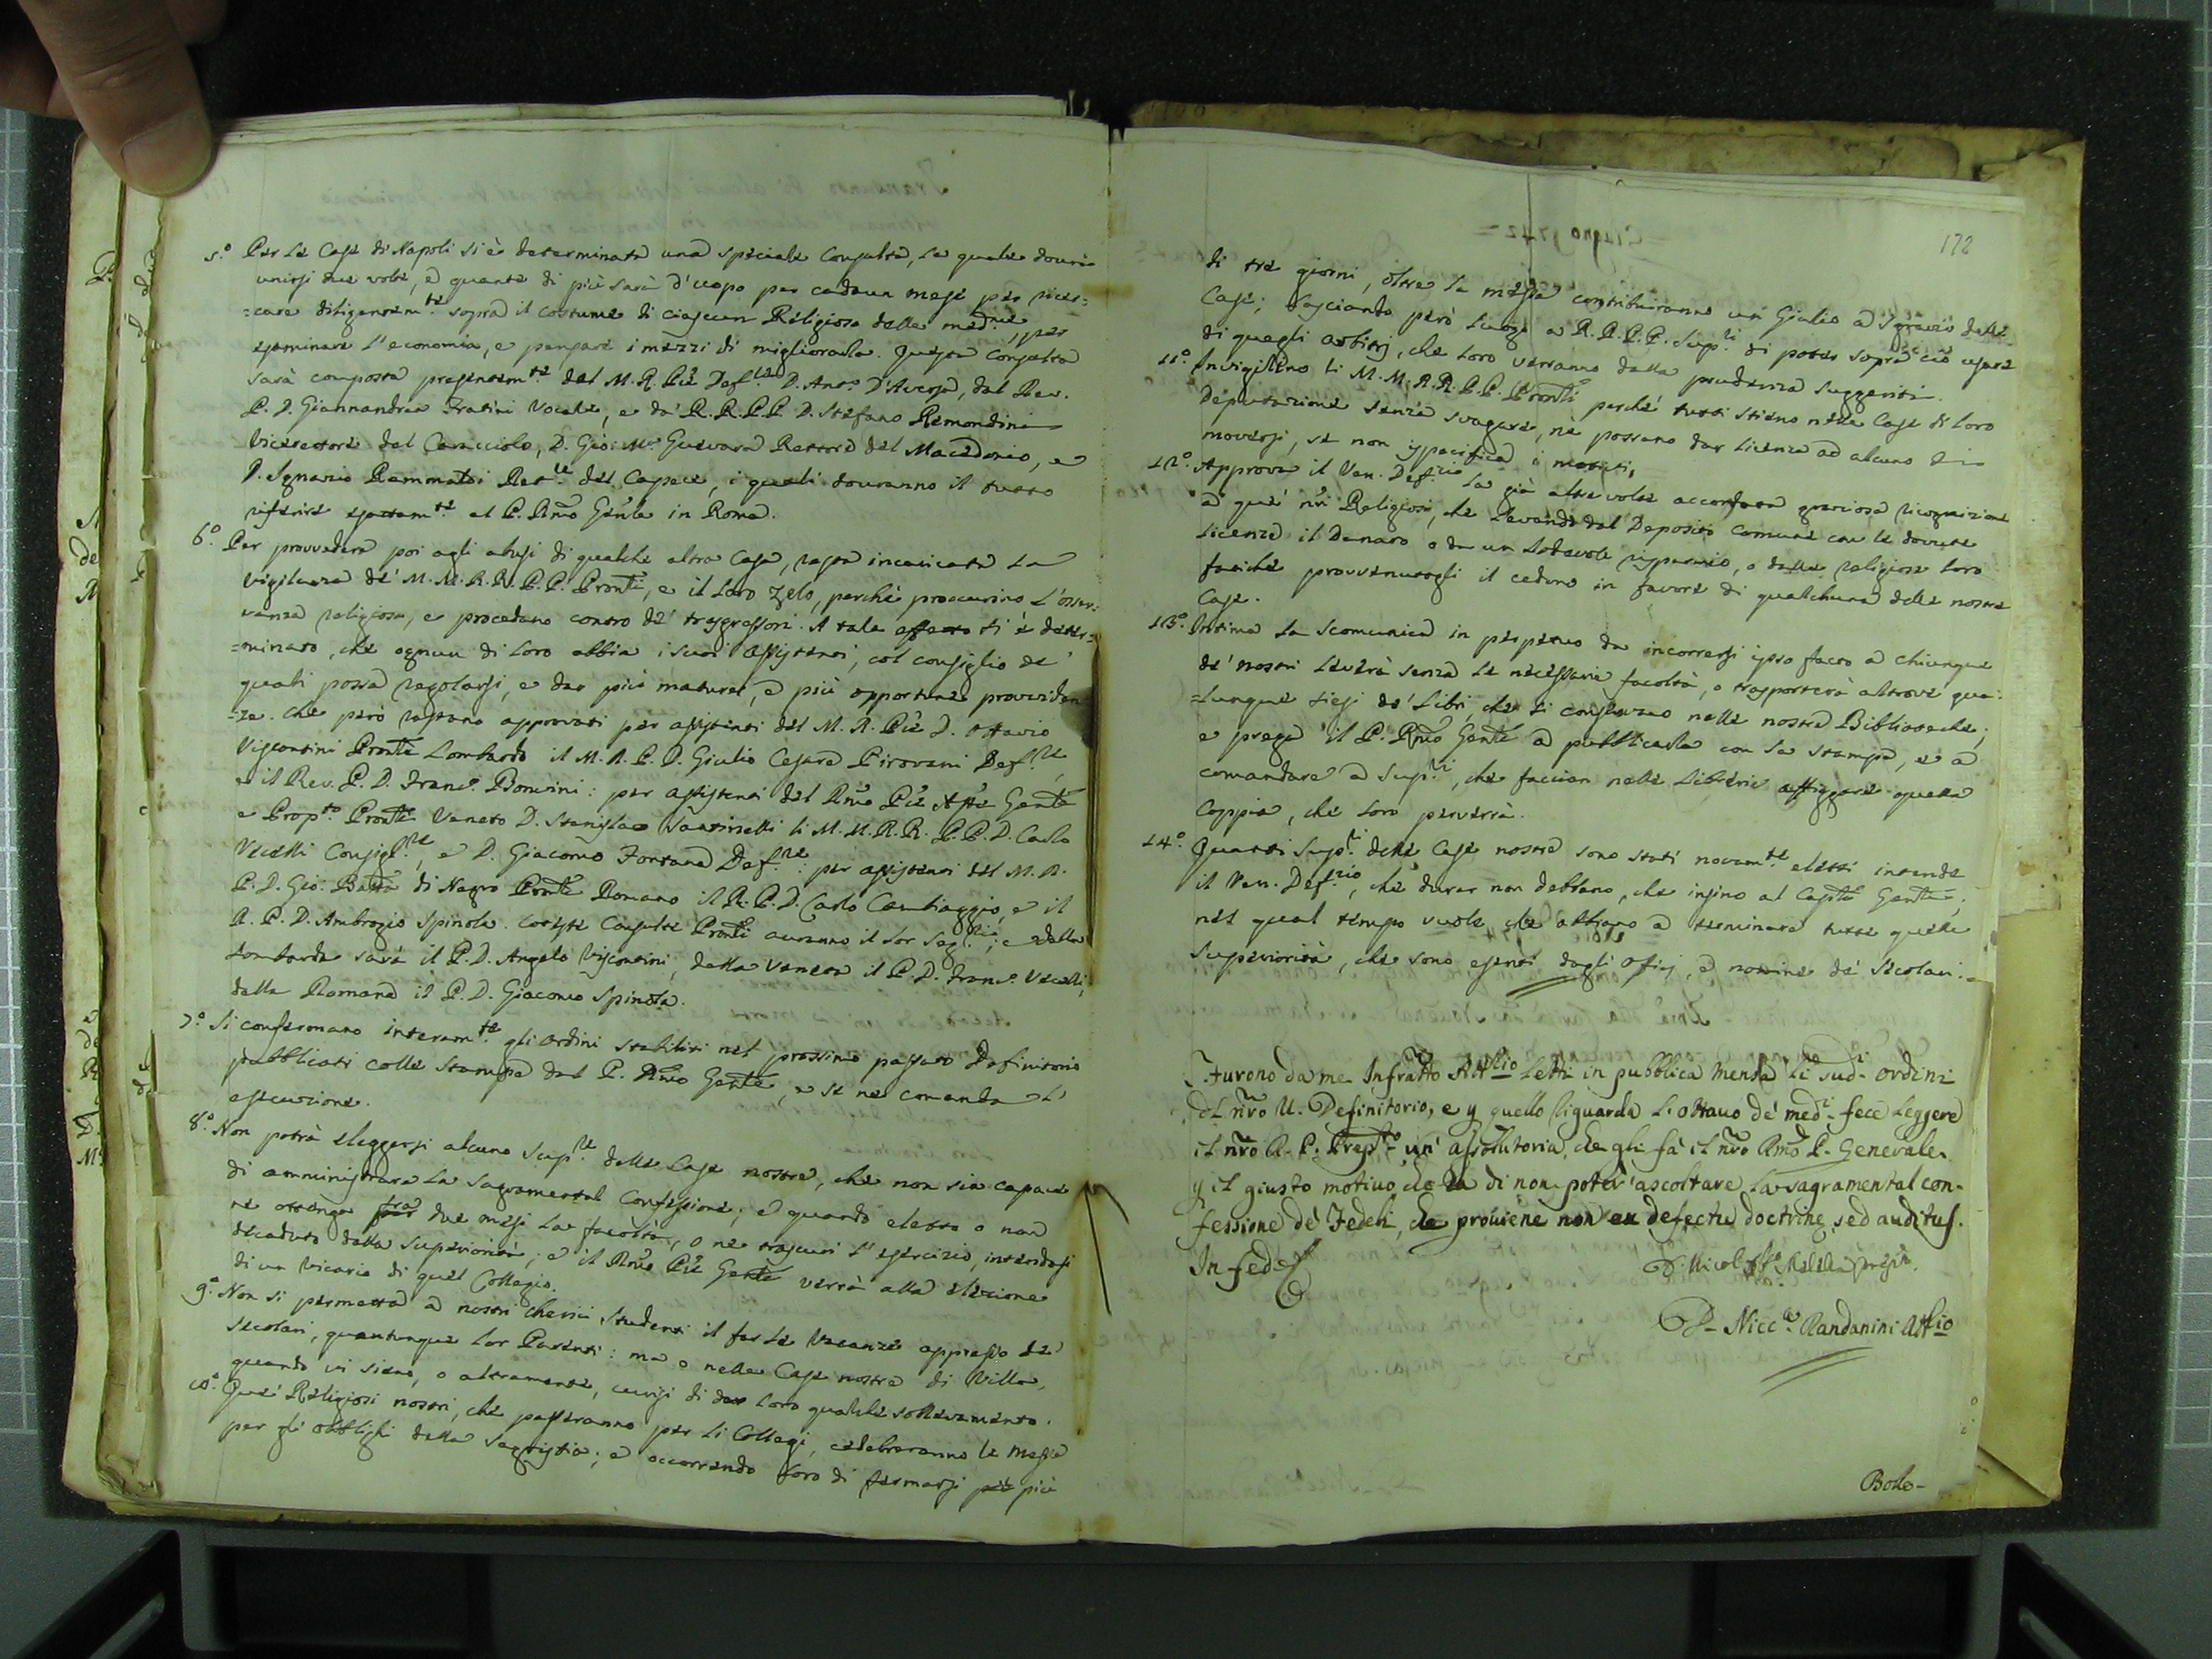 5.° Per le Case di Napoli si è determinata una speciale Consulta, la quale dovrà
unirsi due volte, e quante di più sarà d'uopo per cadaun mese per ricer=
=care diligentem.te sopra il costume di ciascun Religioso delle med.me, per
esaminare l'economia, e pensare i mezzi di migliorarla. Questa Consulta
sarà composta presentem.te del M. R. P̃re Def.re D. Ant.o D'Aversa, dal Rev.
P. D. Giannandrea Fratini Vocale, e da' R. R. P. P. D. Stefano Remondini
Vicerettore del Caracciolo, D. Gio: M.a Guevara Rettore del Macedonio, e
D. Ignazio Rammatei Ret.re del Capece, i quali dovranno il tutto
riferire esattam.te al P. Rm̃o Gen̄le in Roma.
6.° Per provvedere poi agli abusi di qualche altra Casa, resta incaricata la
vigilanza de' M. M. R. R. P. P. Pron̄li, e il loro zelo, perchè proccurino l'osser=
vanza religiosa, e procedano contro de' trasgressori. A tale effetto si è deter=
=minato, che ognun di loro abbia i suoi Assistenti, col consiglio de'
quali possa regolarsi, e dar più mature, e più opportune provviden
=ze. Che però restano approvati per assistenti del M. R. P̃re D. Ottavio
Visconti­ni Pron̄le Lombardo il M. R. P. D. Giulio Cesare Pirovani Def.re,
e il Rev. P. D. Franc.o Bonvini: per assistenti del Rm̃o P̃re Ass̃te Gen̄le
e Prop.to Pron̄le Veneto D. Stanislao Santinelli li M. M. R. R. P. P. D. Carlo
Vecelli Consigl.re, e D. Giacomo Fontana Def.re: per assistenti del M. R.
P. D. Gio: Batt̃a di Negro Pron̄le Romano il R. P. D. Carlo Cambiaggio, e il
R. P. D. Ambrogio Spinola. Coteste Consulte Pron̄li avranno il lor Seg.rio; e della
Lombarda sarà il P. D. Angelo Viscontini, della Veneta il P. D. Franc.o Vecelli,
della Romana il P. D. Giacomo Spinola.
7.° Si confermano interam.te gli ordini stabiliti nel prossimo passato Definitorio
pubblicati colle stampe dal P. Rm̃o Gen̄le, e se ne comanda l'
esecuzione.
8.° Non potrà eleggersi alcuno Sup.re delle Case nostre, che non sia capace
di amministrare la Sagramental Confessione; e quando eletto o non
ne ottenga fra due mesi la facoltà, o ne trascuri l'esercizio, intendasi
decaduto dalla superiorità; e il Rm̃o P̃re Gen̄le verrà alla elezione
di un Vicario di quel Collegio.
9.° Non si permetta a nostri Cherici studenti il far le Vacanze appresso de'
secolari, quantunque lor Parenti: ma o nelle Case nostre di Villa,
quando vi sieno, o altramente, curisi di dar loro qualche sollevamento.
10.° Que' Religiosi nostri, che passeranno per li Collegi, celebreranno le Messe
per gli obblighi della Sagristia; e occorrendo loro di fermarsi più
172
di tre giorni, oltre la messa contribuiranno un Giulio a sgravio delle
Case; lasciando però luogo a R. R. P. P. Sup.ri di poter sopra ciò usare
di quegli arbitrj, che loro verranno dalla prudenza suggeriti.
11.° Invigilino li M. M. R. R. P. P. Pron̄li perchè tutti stieno nelle Case di loro
Deputazione senza svagare, nè possano dar licenza ad alcuno di
moversi, se non ispecificha i motivi,
12.° Approva il Ven. Def.rio la già altre volte accordata graziosa ricognizione
a que' nr̃i Religiosi, che levando dal Deposito comune con le dovute
licenze il Danaro o da un lodevole risparmio, o dalle religiose loro
fatiche provvenutogli il cedono in favore di qualchuna delle nostre
Case.
13.° Intima la scomunica in perpetuo da incorrersi ipso facto a chiunque
de' nostri leverà senza le necessarie facoltà, o trasporterà altrove qua=
=lunque siesi de' Libri, che si conservano nelle nostre Biblioteche;
e prega il P. Rm̃o Gen̄le a pubblicarla con la stampa, e a
comandare a Sup.ri, che faccian nelle Librerie affiggere quella
Coppia, che loro perverrà.
14.° Quanti Sup.ri delle Case nostre sono stati novam.te eletti intende
il Ven. Def.rio, che durar non debbano, che insino al Cap̃lo Gen̄le,
nel qual tempo vuole che abbiano a terminare tutte quelle
superiorità, che sono esenti dagli Ofizj, e nomine de' secolari.
Furono da me Infratto Att.rio Letti in pubblica mensa li sud.i ordini
del nr̃o V. Definitorio, e p quello riguarda l'ottavo de' med.i fece leggere
il nr̃o R. P. Prep.to un' assolutoria, che gli fà il nr̃o Rm̃o P. Generale
p il giusto motivo, che ha di non poter' ascoltare la sagramental con-
fessione de' Fedeli, che proviene non ex defectu doctrine, sed auditus.
In fede
D. Nicc.o Randanini Att.rio